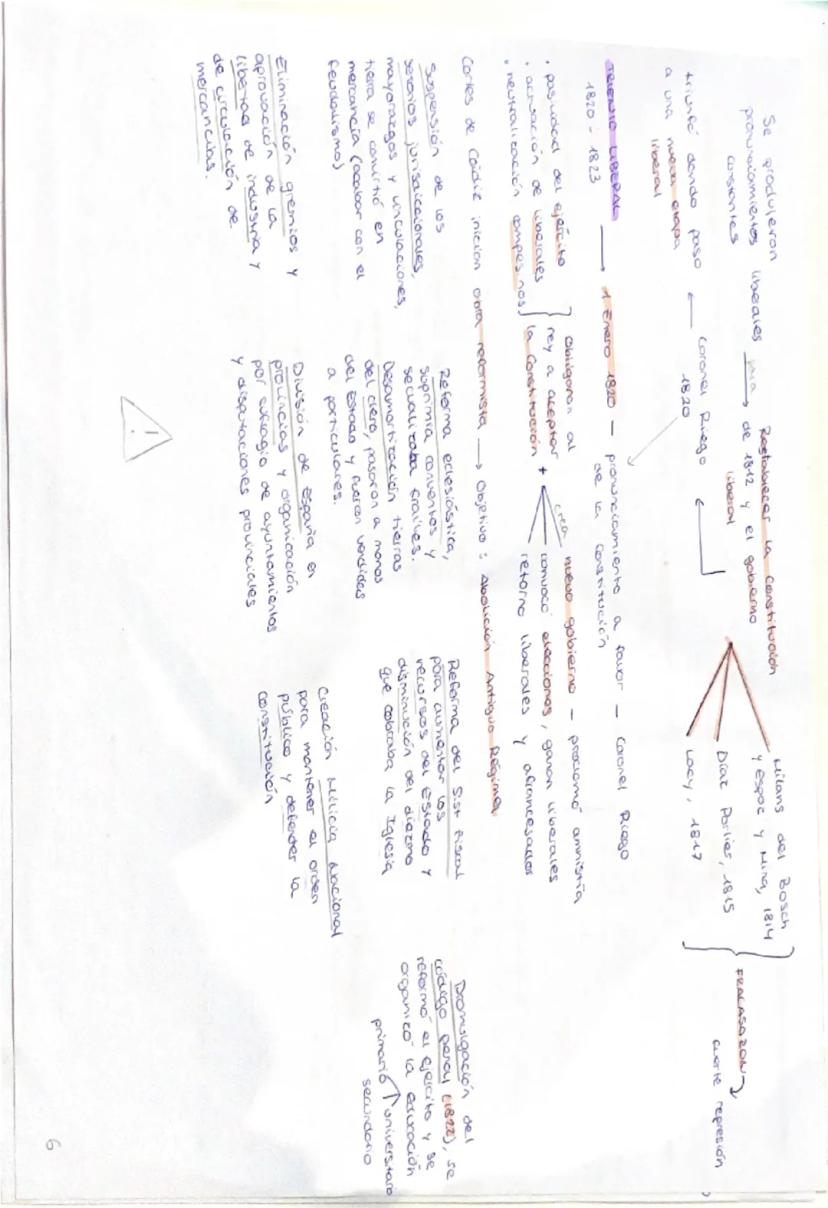 Se produjeron
pronunciamientos liberales para → Restablecer la Constitución
constantes de 1812 y el gobierno
liberal
Milans del Bosch
y Espoz y Mina, 1814
Díaz Porlier, 1815
Lacy, 1817
FRACASARON
fuerte represión
triunfó dando paso ← Coronel Riego
a una nueva etapa 1820
liberal
TRIENIO LIBERAL → 1 Enero 1820 - pronunciamiento a favor - Coronel Riego
1820 - 1823 de la constitución
· pasividad del ejército
· actuación de liberales
· neutralización campesinos
obligaron al
rey a aceptar
la Constitución +
crea nuevo gobierno - proclamó amnistía
convocó elecciones, ganan liberales
retorno liberales y afrancesados
Cortes de Cádiz inician obra reformista → Objetivo: Abolición Antiguo Régimen
Suspensión de los
señoríos jurisdiccionales,
mayorazgos y vinculaciones,
tierra se convirtió en
mercancía (acabar con el
feudalismo)
Reforma eclesiástica,
suprimía conventos y
secualizaba frailes.
Desamortización tierras
del clero, pasaron a manos
del Estado y fueron vendidas
a particulares.
Reforma del Sist Fiscal
para aumentar los
recursos del Estado y
disminución del diezmo
que cobraba la Iglesia
Promulgación del
código penal (1822), se
reformó el ejército y se
organizó la educación
primario universitario
secundario
Eliminación gremios y
aprovación de la
libertad de industria y
de circulación de
mercancías.
División de España en
provincias y organización
por sufragio de ayuntamientos
y diputaciones provinciales
Creación Milicia Nacional
para mantener el orden
público y defender la
constitución
!
6